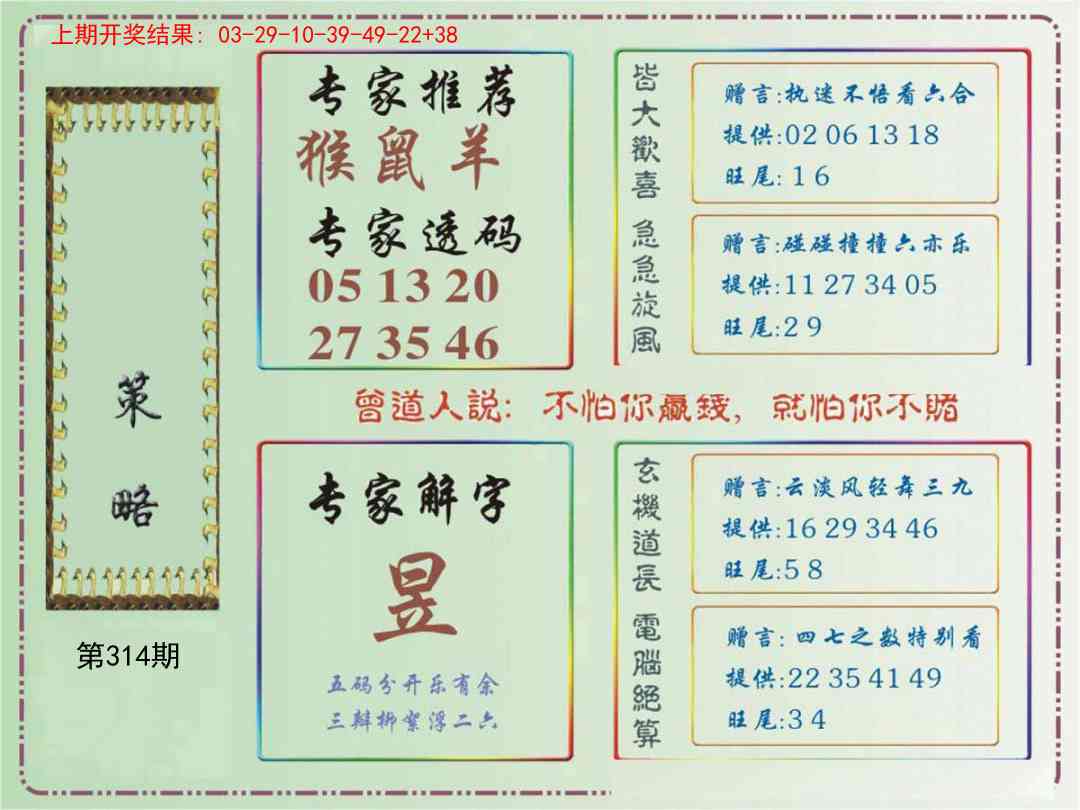 上期开奖结果: 03-29-10-39-49-22+38
策略
第314期
专家推荐
猴鼠羊
专家透码
05 13 20
27 35 46
皆大歡喜
赠言:执迷不悟看六合
提供:02 06 13 18
旺尾: 1 6
急急旋風
赠言:碰碰撞撞六亦乐
提供:11 27 34 05
旺尾:2 9
曾道人説: 不怕你贏錢, 就怕你不賭
专家解字
昱
五码分开乐有余
三辩柳絮浮二六
玄機道長
赠言:云淡风轻舞三九
提供:16 29 34 46
旺尾:5 8
電腦絕算
赠言: 四七之数特别看
提供:22 35 41 49
旺尾:3 4